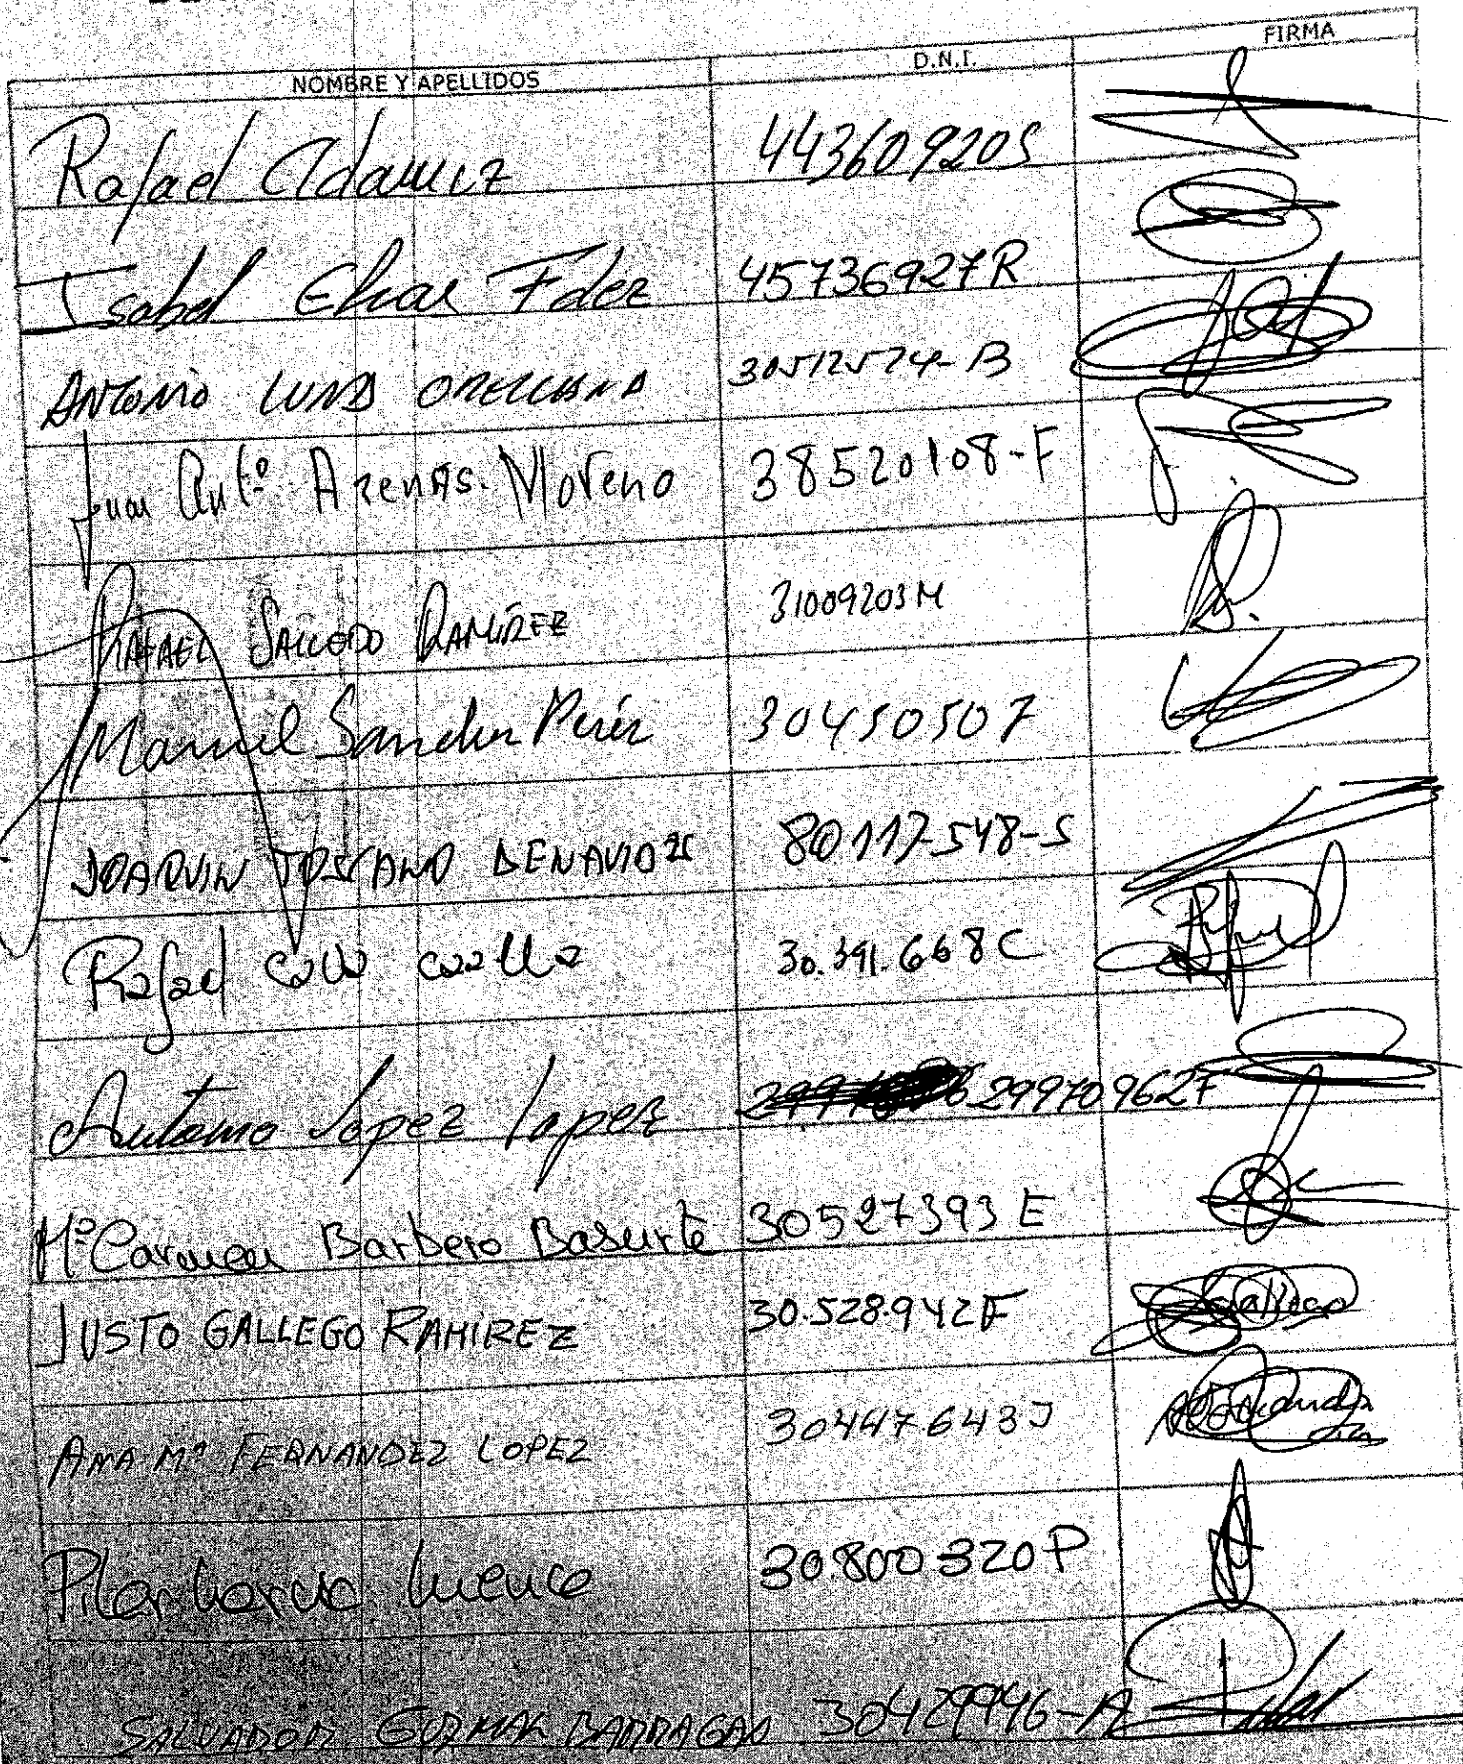 NOMBRE Y APELLIDOS D.N.I. FIRMA
Rafael Adamuz 44360920S
Isabel Elias Fdez 45736927R
ANTONIO LUNA ORELLANA 30512574-B
Juan Antº Arenas Moreno 38520108-F
RAFAEL SALCEDO RAMÍREZ 31009203M
Manuel Sanchez Perez 30450507
JOAQUIN TOSCANO BENAVIDES 80117-548-S
Rafael 30.391.668C
Antonio Lopez Lopez 29970962F
Mª Carmen Barbero Basurte 30527393 E
JUSTO GALLEGO RAMIREZ 30.528.942F
ANA Mª FERNANDEZ LOPEZ 30447643J
Pilar Garcia 30.800320P
SALVADOR GUZMAN BARRAGAN 30429946-A